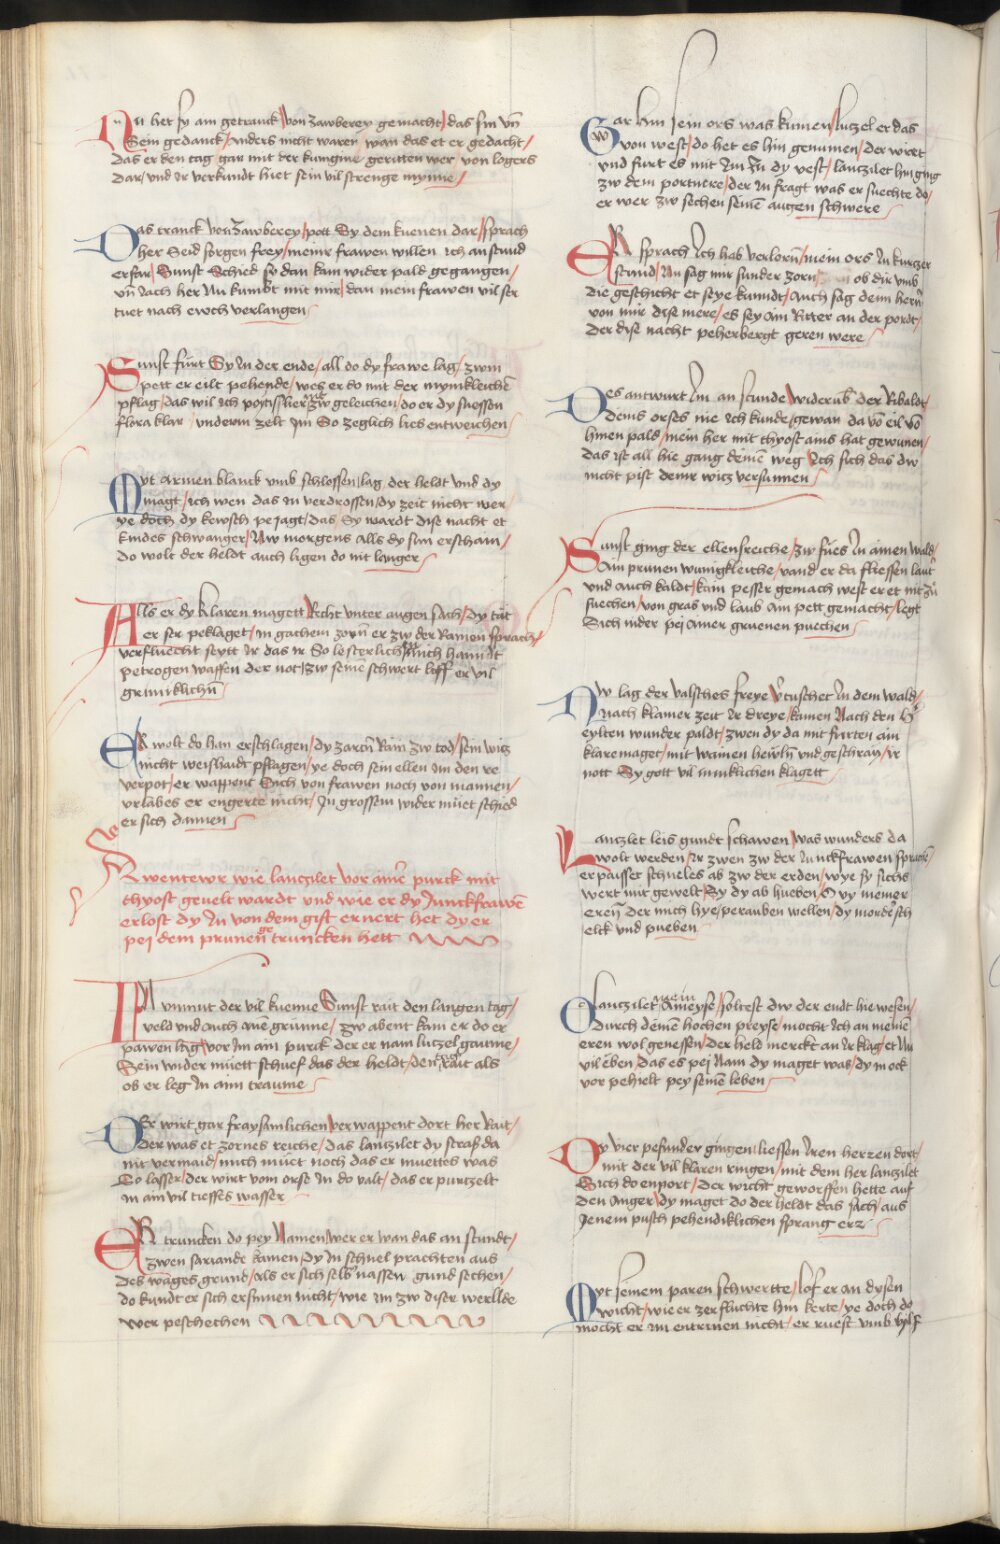 Nu het sy am getranck von zawberey gemacht / das sin vn
Sein gedanck / Anders nicht waren wan das et er gedacht /
das er den tag gar mit der kungine geritten wer von logers
dar / vnd ir verkundt hiet sein vil strenge mynne /
Das tranck von zawberey / pott Sy dem kuenen dar / sprach
her Seid sorgen frey / meinr frawen willen ich an stund
erfar / Sunst Schied sy dan kam wider pald gegangen /
vn nach her Nu kumbt mit mir / dan mein frawen vil ser
tuet nach ewch verlangen
Sunst fürt Sy in der ende / all do dy frawe lag / zwm
pett er eilt pehende / wes er do mit der mynikleichn
pflag / das wil ich poytisslier zw geleichen / do er dy suessen
flora klar / vnderm zelt im So zeglich lies entweichen
Myt armen blanck vmb schlossen / lag der heldt vnd dy
magt / ich wen das in verdrossen / dy zeit nicht wer
ye doch dy kewsch pejagt / das Sy wardt dise nacht et
kindes schwanger / Nw morgens alls dy sun erschain /
do wolt der heldt auch ligen do nit langer
Alls er dy klaren magett Recht vnter augen sach / dy tüt
er ser peklaget / in gachem zorn er zw der Ramen sprach /
verfluecht seytt ir das ir So lesterlich mich hanndt
petrogen waffen der not / zw seinē schwert lieff er vil
grimiklichn
Er wolt do han erschlagen / dy zartn Rain zw tod / sein witz
nicht weishaidt pflagen / ye doch sein ellen im den re
verpot / er wappent Sich von frawen noch von mannen /
vrlabes er engerte nicht / In grossem wider müet schied
er sich dannen
Awentewr wie lanczilet vor aine purck mit
thyost geuelt wardt vnd wie er dy Junckfrawē
erlost dy in von dem gift ernert het dy er
pei dem prunen getruncken hett
An vnmut der vil kuenne Sunst rait den langen tag /
veld vnd auch auē grunne / zw abent kam er do er
pawen lag / vor im am purck der er nam luczel gaume /
Sein wider müett schuef das der heldt / den rait als
ob er leg in aim traume
Der wirt gar fraysamlichen verwappent dort her Rait /
der was et zornes reiche / das lanczilet dy straf da
nit vermaid / mich müet noch das er muettes was
So lasser / der wirt vom orse in do valt / das er purtzelt
in am vil tieffes wasser
Er truncken do pey Namen / wer er wan das an stundt /
zwen sariande kamen / dy in schnel prachten aus
des wages grund / als er sich selb nassen gund sechen /
do kundt er sich ersinnen nicht / wie im zw diser werllde
wer peschechen
Gar hin sein ors was kumen / luczel er das
von west / do het es hin genumen / der wirtt
vnd furt es mit im zu dy vest / lanczilet hin ging
zw dem portnere / der in fragt was er suechte do /
er wer zw sechen seinē augen schwere
Er sprach Ich hab verlorn / mein ors in kurczer
stund / nu sag mir sunder zorn / ob dir vmb
die geschicht et seye kunndt / Auch sag deim hern
von mir dise mere / es sey ain Ritter an der pordt /
der dise nacht peherbergt geren were
Des antwurt im an stunde / widerub der Ribaldt /
deins orses nie ich kunde / gewan da vō eil vō
hinen pald / mein her mit thyost ains hat gewunen /
das ist all hie gang deinē weg Ich sich das dw
nicht pist deinr witz versunnen
Sunst ging der ellensreiche / zw fues in ainen wald /
Ain prunen wunigkleiche / vand er da fliessen laut
vnd auch kaldt / kain pesser gemach west er et nit zu
suechen / von gras vnd laub am pett gemacht / legt
Sich nider pei ainer gruenen puechen
Nw lag der valsches freye / vertuschet in dem wald /
Nach klainer zeit ir dreye / kamen Nach den Sy
eylten wunder paldt / zwen dy da mit furten ain
klare maget / mit wainen hewln vnd geschray / ir
nott Sy gott vil inniklichen klagett
Lanczlet leis gundt schawen / was wunders da
wolt werden / ir zwen zw der Junckfrawen sprachē
er pausset schneles ab zw der erden / wye sy sichs
wert mit gewelt / Sy dy ab hueben / O wy meiner
eren Der mich hye / perauben wellen / dy mordesch
elck vnd pueben
O lanczilet mein Ameyse / soltest dw der endt hie wesen /
durch deinē hochen preyse / mocht ich an meinē
eren wol genessen / der held merckt an ir klag / et Nu
vil eben / das es pei Nam dy maget was / dy in ock
vor pehielt pey seinē leben
Dy vier pesunder gingen / liessen iren herzen dort /
mit der vil klaren ringen / mit dem her lanczilet
Sich do enport / der wicht geworffen hette auf
den Anger / dy maget do der heldt das sach / aus
Jenem pusch pehendiklichen sprang erz
Myt seinem paren schwertte / lof er an dysen
wicht / wie er zer fluchte hin kerte / ye doch do
mocht er im entrinen nicht / er rueft vmb hylf